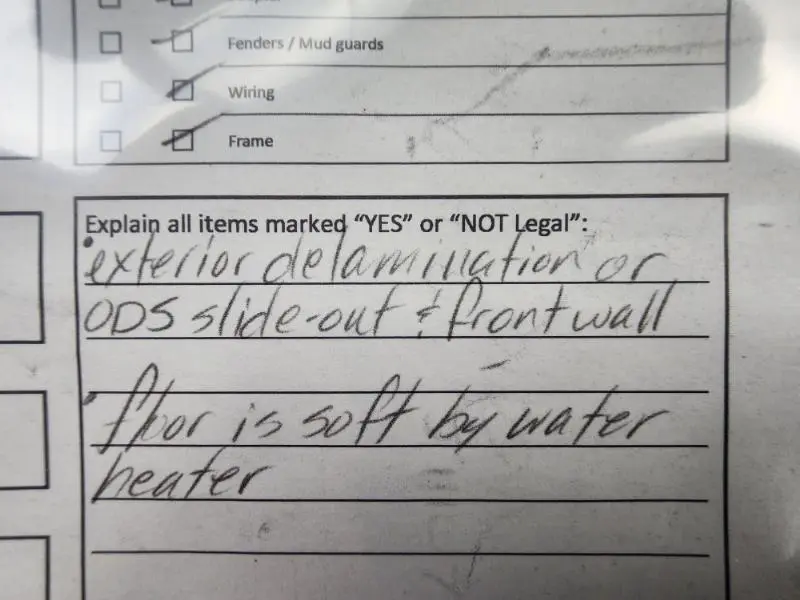 Fenders / Mud guards
Wiring
Frame
Explain all items marked “YES” or “NOT Legal”:
•exterior delamination or
ODS slide-out & front wall
•floor is soft by water
heater